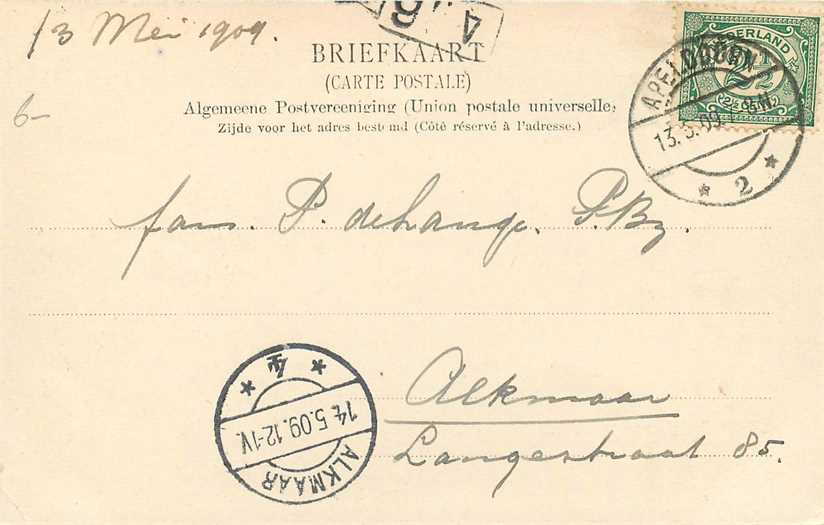 13 Mei 1909.
6-
BRIEFKAART
(CARTE POSTALE)
Algemeene Postvereeniging (Union postale universelle)
Zijde voor het adres bestemd (Côté réservé à l'adresse.)
NEDERLAND
2½
2½ CENT 2½
APELDOORN
13.5.09
* 2 *
fam. P. de Lange. PBz.
Alkmaar
Langestraat 85.
* 4 *
14.5.09.12-1V.
ALKMAAR